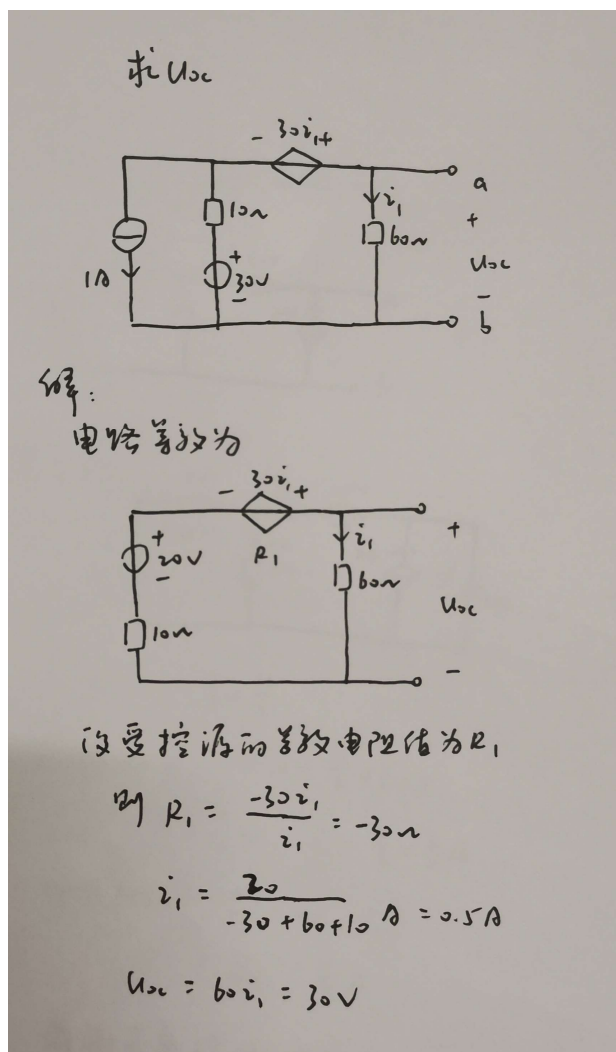 求Uoc
- 30i₁ +
a
10Ω
i₁
60Ω
+
+
30V
-
1A
Uoc
-
b
解:
电路等效为
- 30i₁ +
+
20V
-
R₁
i₁
60Ω
+
10Ω
Uoc
-
设受控源的等效电阻值为R₁
则 R₁ = -30i₁ / i₁ = -30Ω
i₁ = 20 / -30+60+10 A = 0.5A
Uoc = 60i₁ = 30V